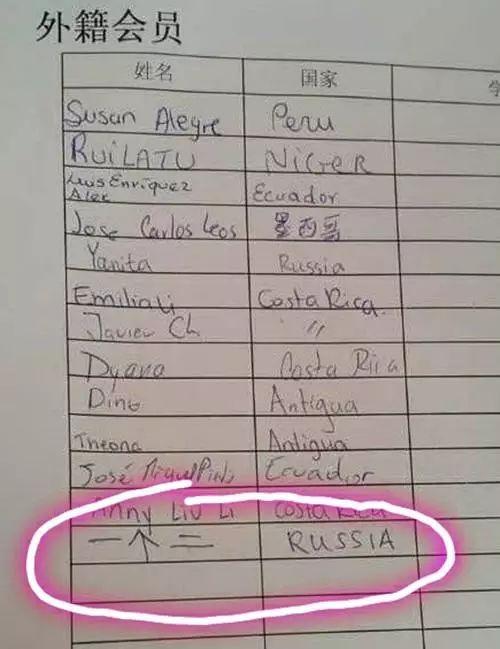 外籍会员
姓名 国家 学
Susan Alegre Peru
RUILATU NIGER
Luis Enriquez Ecuador
Alex
Jose Carlos Leos 墨西哥
Yanita Russia
Emilia Li Costa Rica.
Javier Ch 〃
Dyana Costa Rica
Dino Antigua
Theona Antigua
José Miguel Pinto Ecuador
Anny Liu Li Costa Rica
一个二 RUSSIA